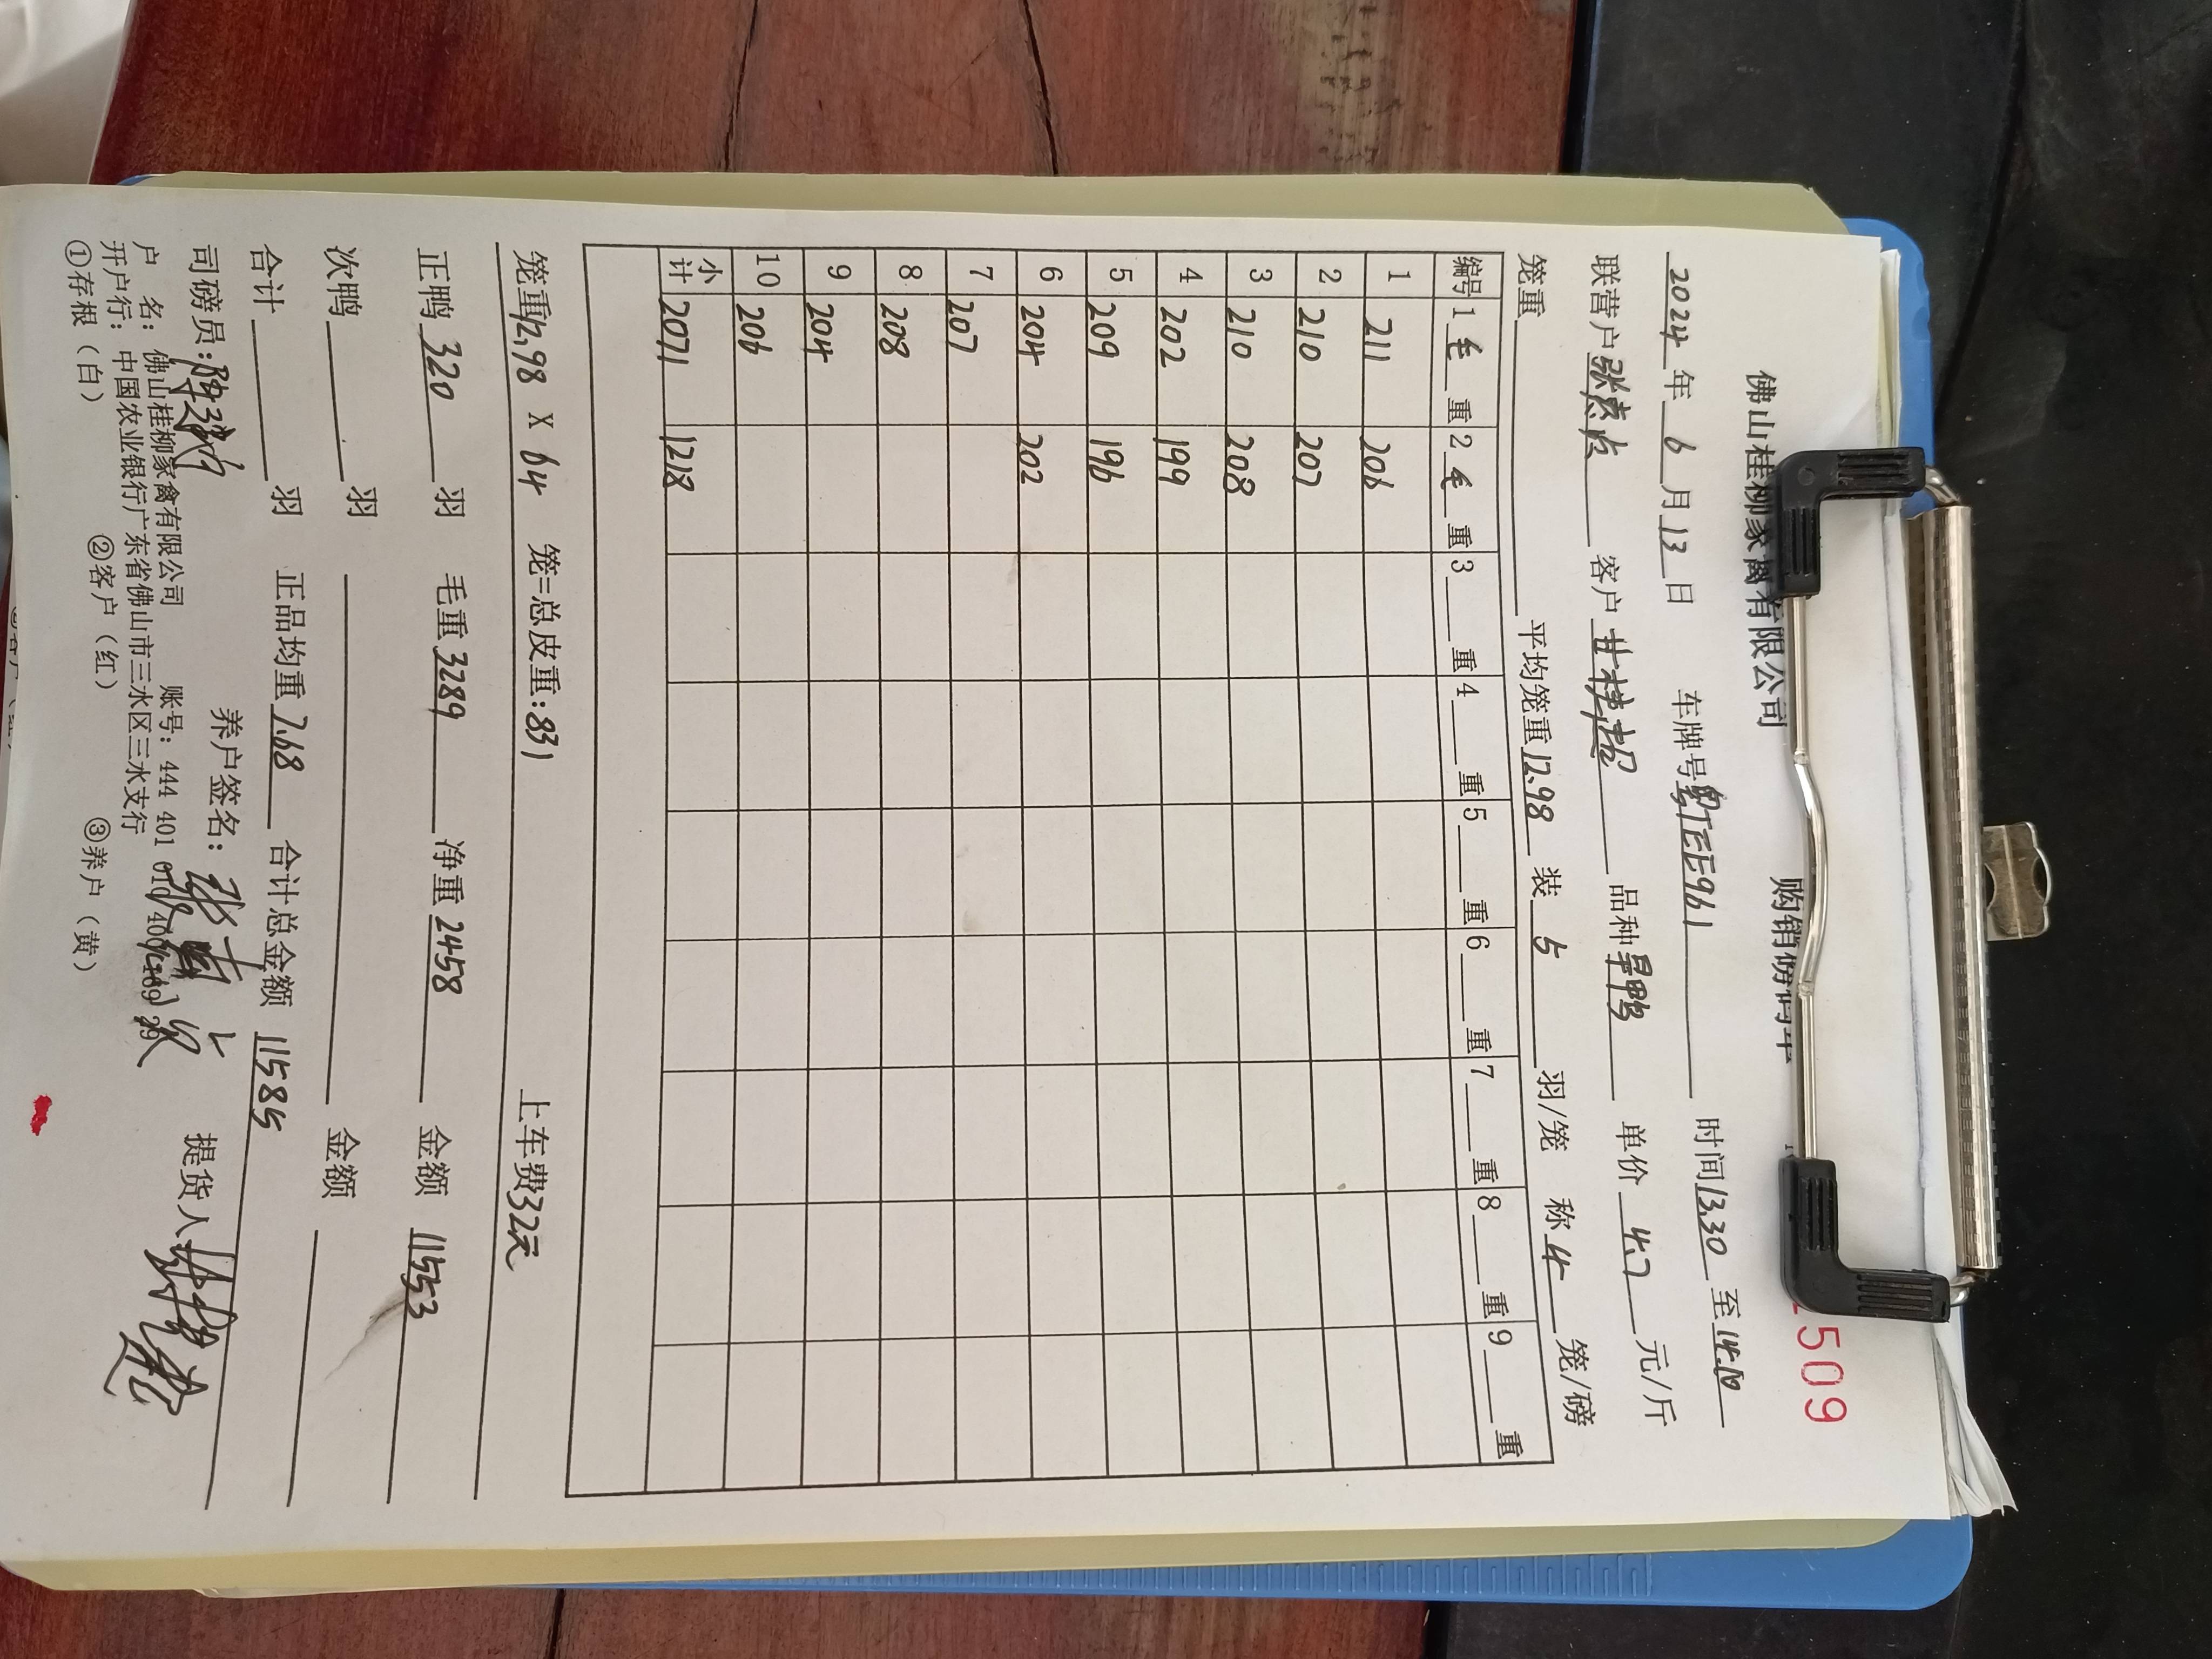 佛山桂柳家禽有限公司 购销
509
2024年6月13日 车牌号粤TEE961 时间13.30至14.10
联营户 客户甘桂招 品种旱鸭 单价4.7元/斤
笼重 平均笼重12.98 装5羽/笼 称4笼/磅
编号 1毛重 2毛重 3重 4重 5重 6重 7重 8重 9重
1 211 206
2 210 207
3 210 208
4 202 199
5 209 196
6 204 202
7 207
8 208
9 204
10 206
小计 2071 1218
笼重12.98 X 64 笼=总皮重:831 上车费32元
正鸭320羽 毛重3289 净重2458 金额11553
次鸭 羽 金额
合计 羽 正品均重7.68 合计总金额11585
司磅员: 养户签名: 提货人
户 名: 佛山桂柳家禽有限公司 账号: 444 401 010 400
开户行: 中国农业银行广东省佛山市三水区三水支行
①存根(白) ②客户(红) ③养户(黄)